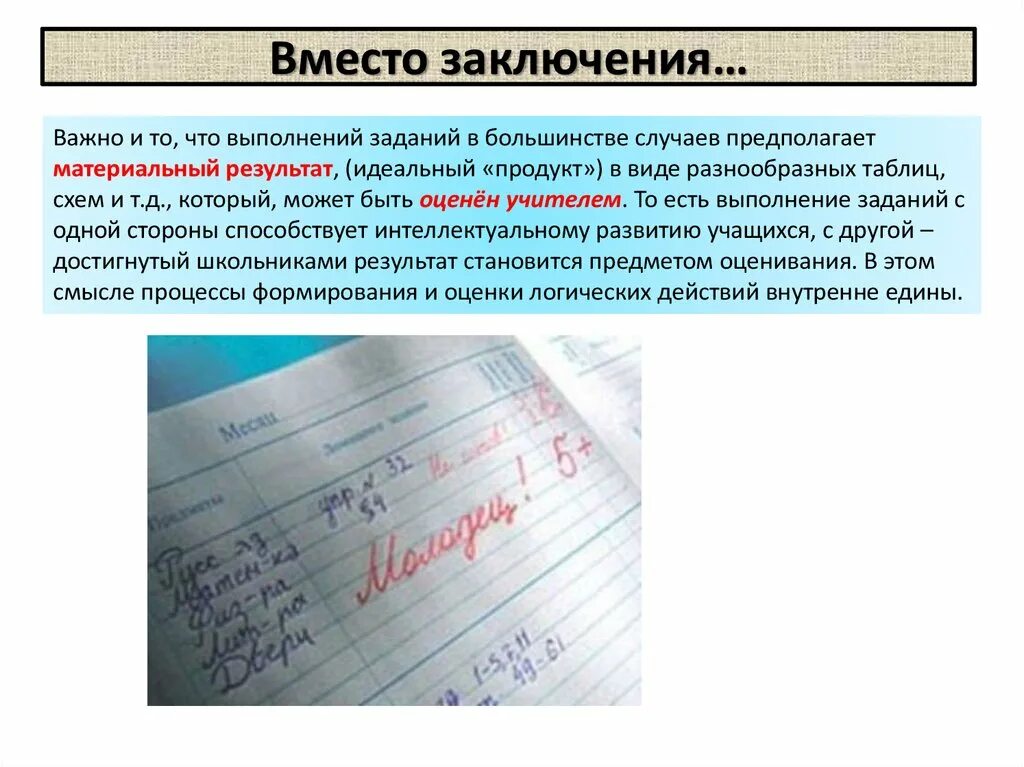 Вместо заключения…
Важно и то, что выполнений заданий в большинстве случаев предполагает
материальный результат, (идеальный «продукт») в виде разнообразных таблиц,
схем и т.д., который, может быть оценён учителем. То есть выполнение заданий с
одной стороны способствует интеллектуальному развитию учащихся, с другой –
достигнутый школьниками результат становится предметом оценивания. В этом
смысле процессы формирования и оценки логических действий внутренне едины.
Месяц
Домашнее задание
Предметы
упр. N 32
54
Не готов!
Молодец! 5+
Русс яз
Матем-ка
Физ-ра
Лит-ра
Двери
1-5,7,11
49-61